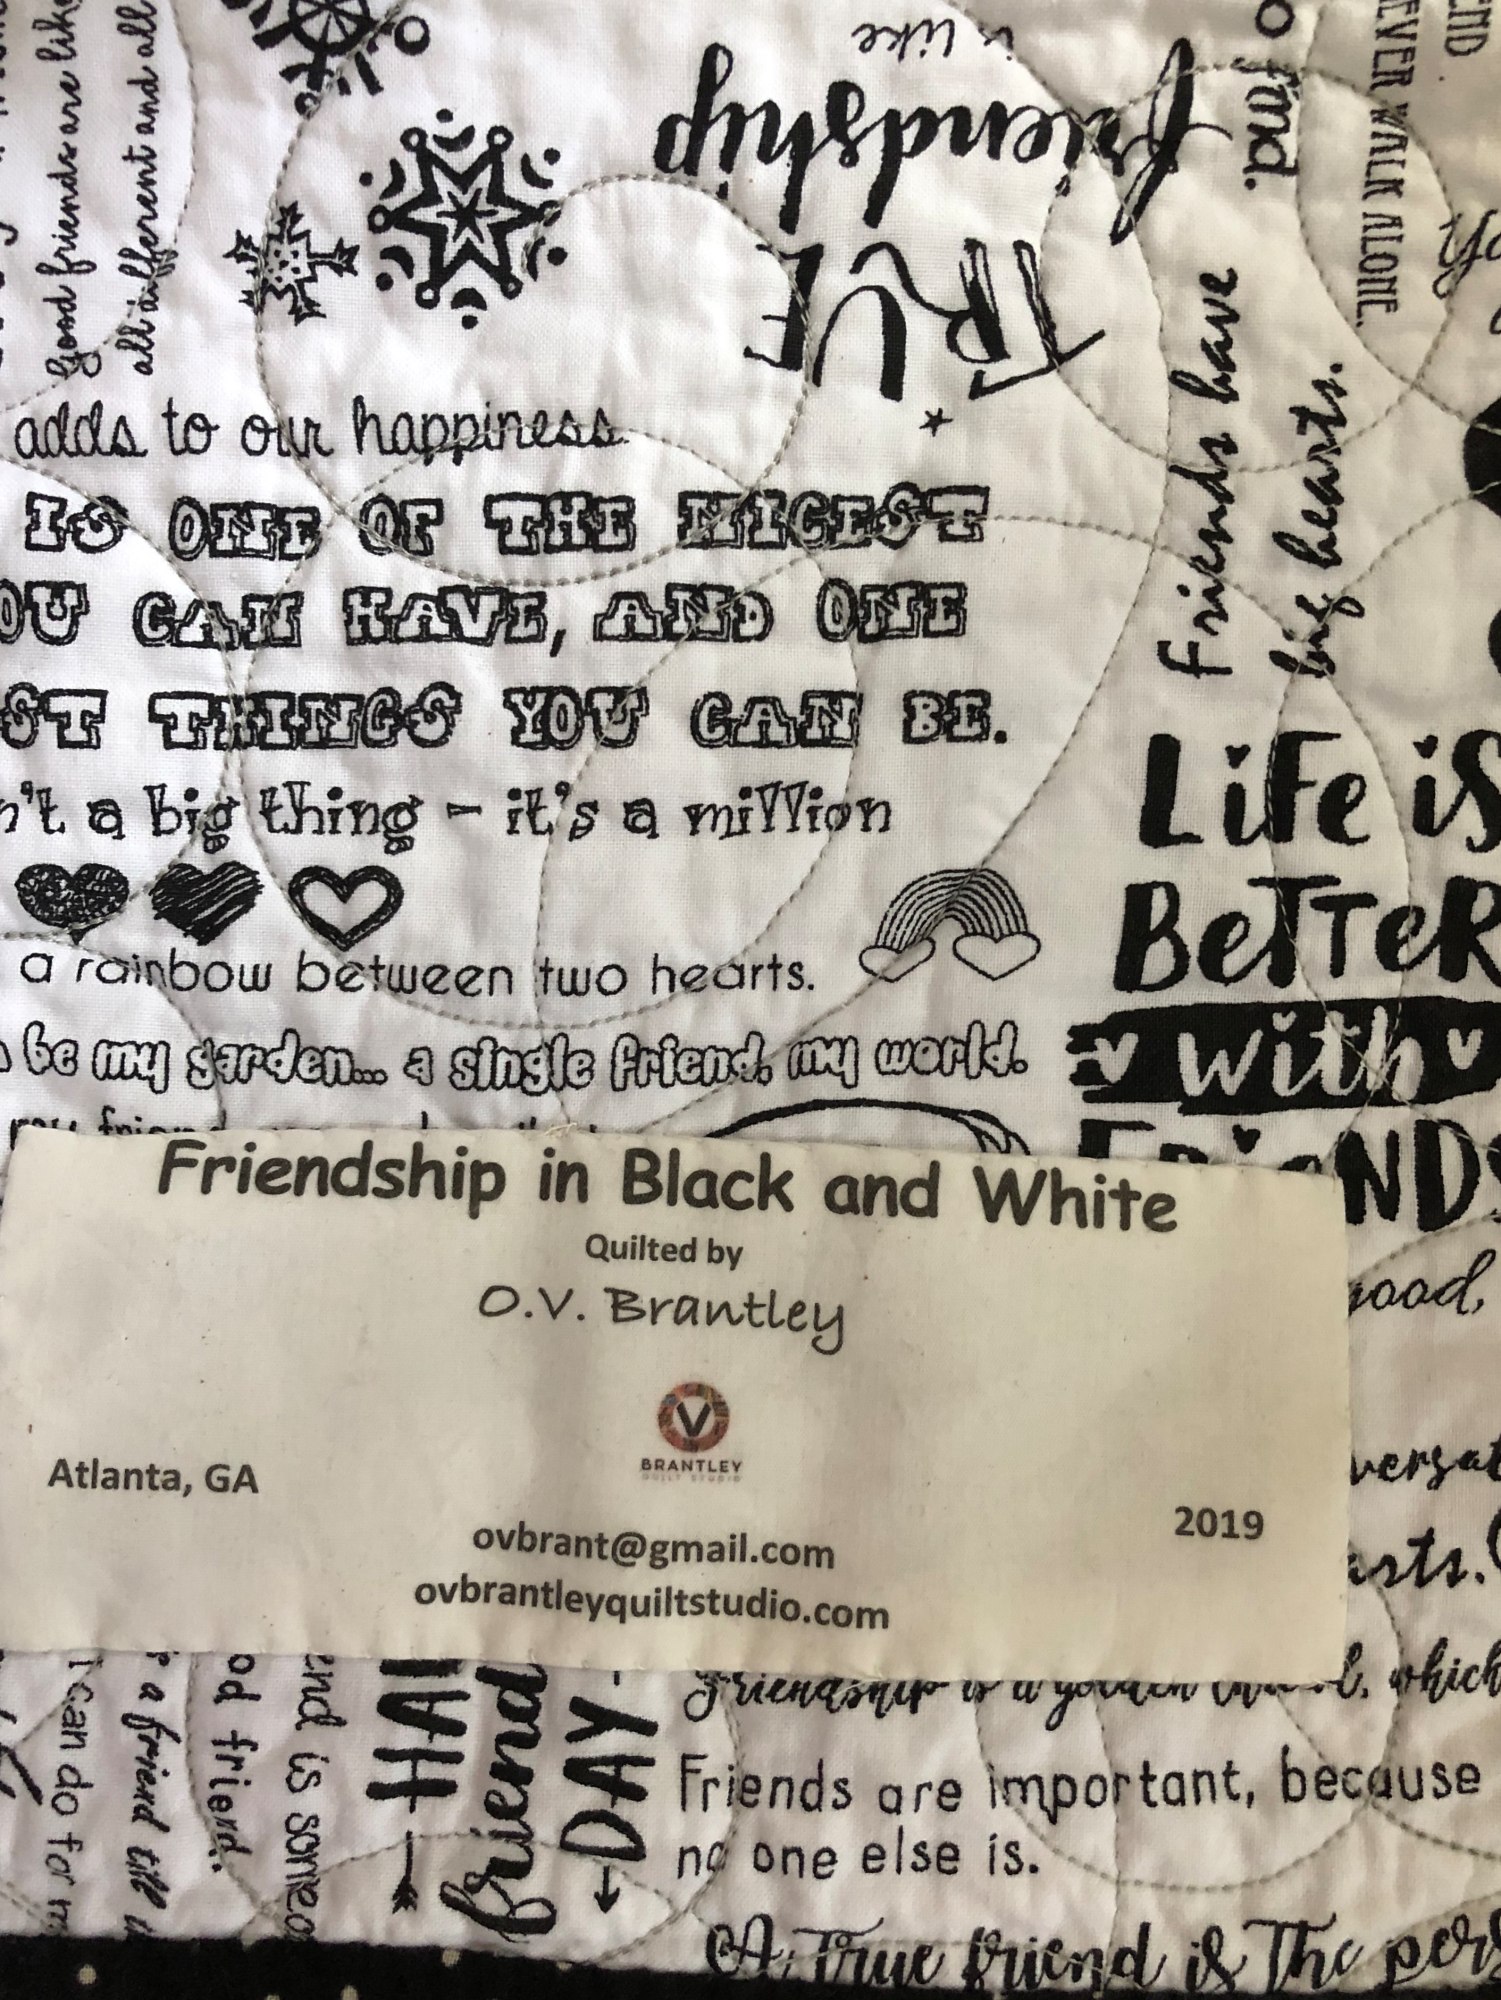 good friends are like
all different and all
is like
friendship
TRUE
to find.
NEVER WALK ALONE.
Friends have
big hearts.
adds to our happiness
IS ONE OF THE NICEST
CAN HAVE, AND ONE
THINGS YOU CAN BE.
a big thing - it's a million
a rainbow between two hearts.
be my garden... a single friend, my world.
LiFe is
BeTTeR
with
FRieNDS
good,
Friendship in Black and White
Quilted by
O.V. Brantley
V
BRANTLEY
QUILT STUDIO
Atlanta, GA
2019
ovbrant@gmail.com
ovbrantleyquiltstudio.com
I can do for
a friend till
friend..
is
friend
DAY
Friendship is a golden which
Friends are important, because
no one else is.
A True friend is The